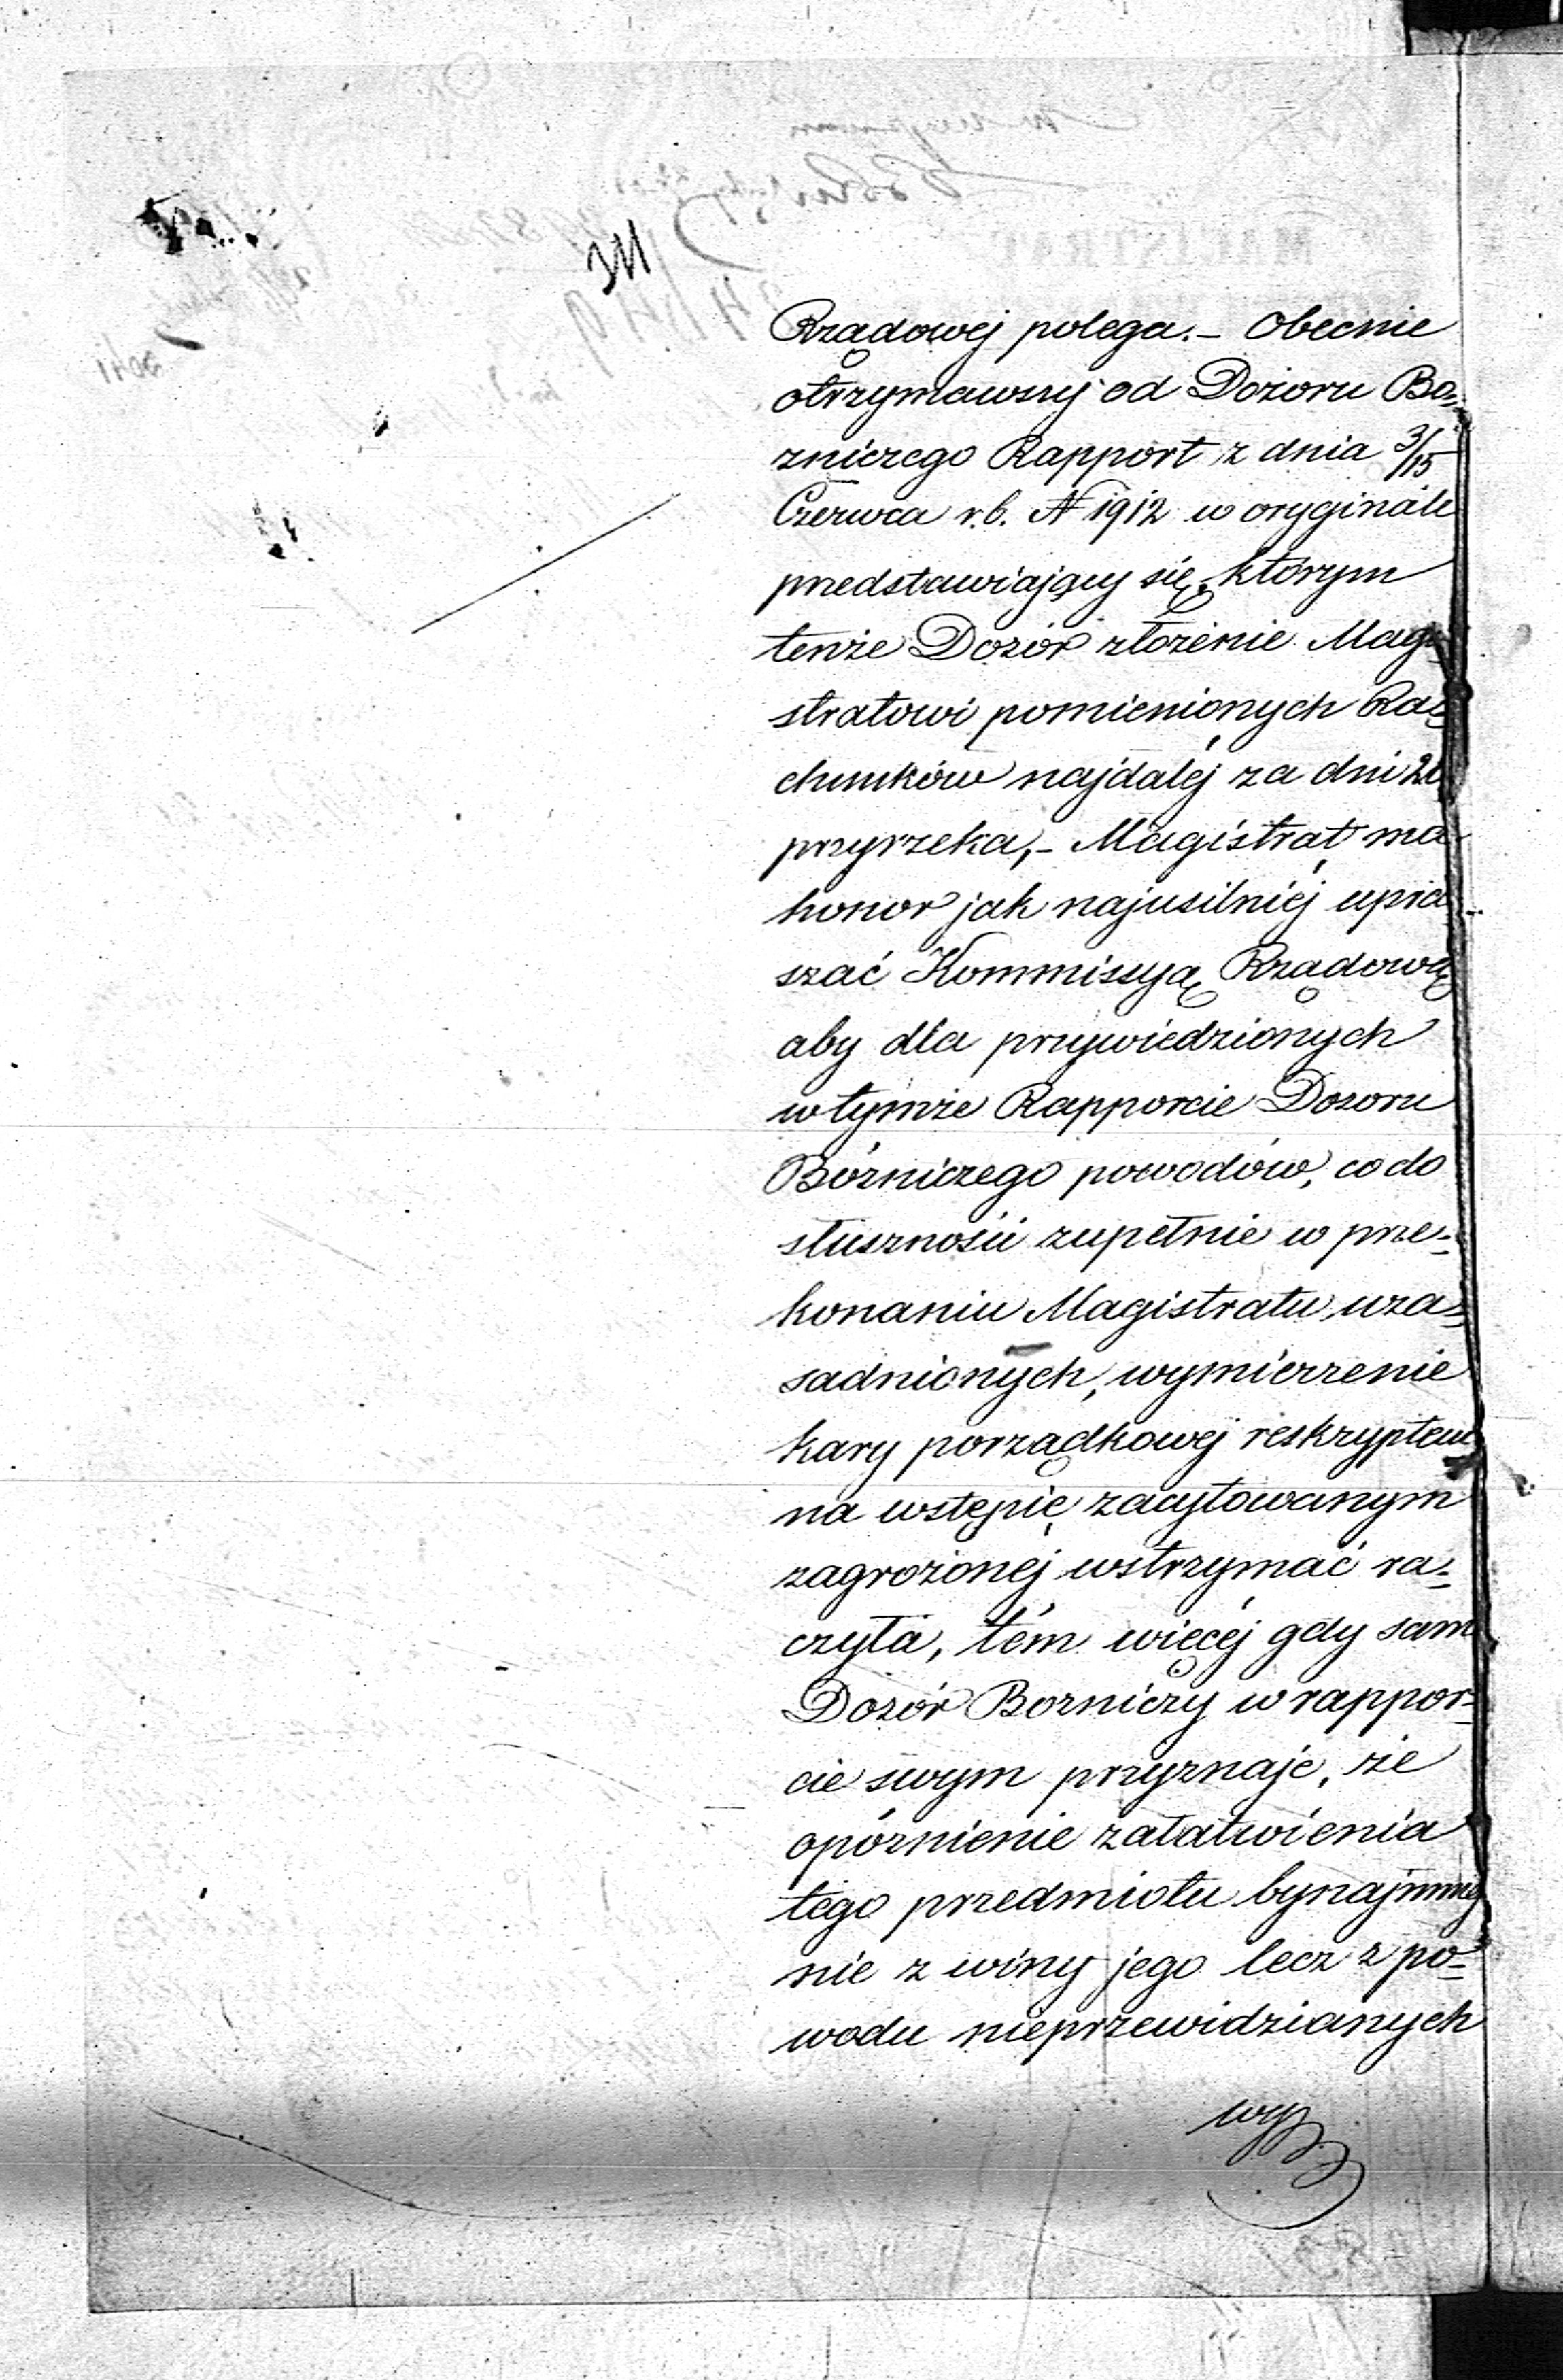 Rządowéj polega. – Obecnie
otrzymawszy od Dozoru Bo=
zniczego Rapport z dnia 3/15
Czerwca r.b. N 1912 w oryginale
przedstawiający się, którym
tenże Dozór złożenie Magi=
stratowi pomienionych Ra=
chunków najdaléj za dni 20
przyrzeka, – Magistrat ma
honor jak najusilniéj upra=
szać Kommissyą Rządową
aby dla przywiedzionych
w tymże Rapporcie Dozoru
Bózniczego powodów, co do
słuszności zupełnie w prze=
konaniu Magistratu uza=
sadnionych, wymierzenie
kary porządkowéj reskryptem
na wstępie zacytowanym
zagrożonéj wstrzymać ra=
czyła, tém więcéj gdy sam
Dozór Bozniczy w rappor=
cie swym przyznaje, że
opóznienie załatwienia
tego przedmiotu bynajmniéj
nie z winy jego lecz z po=
wodu nieprzewidzianych
wy